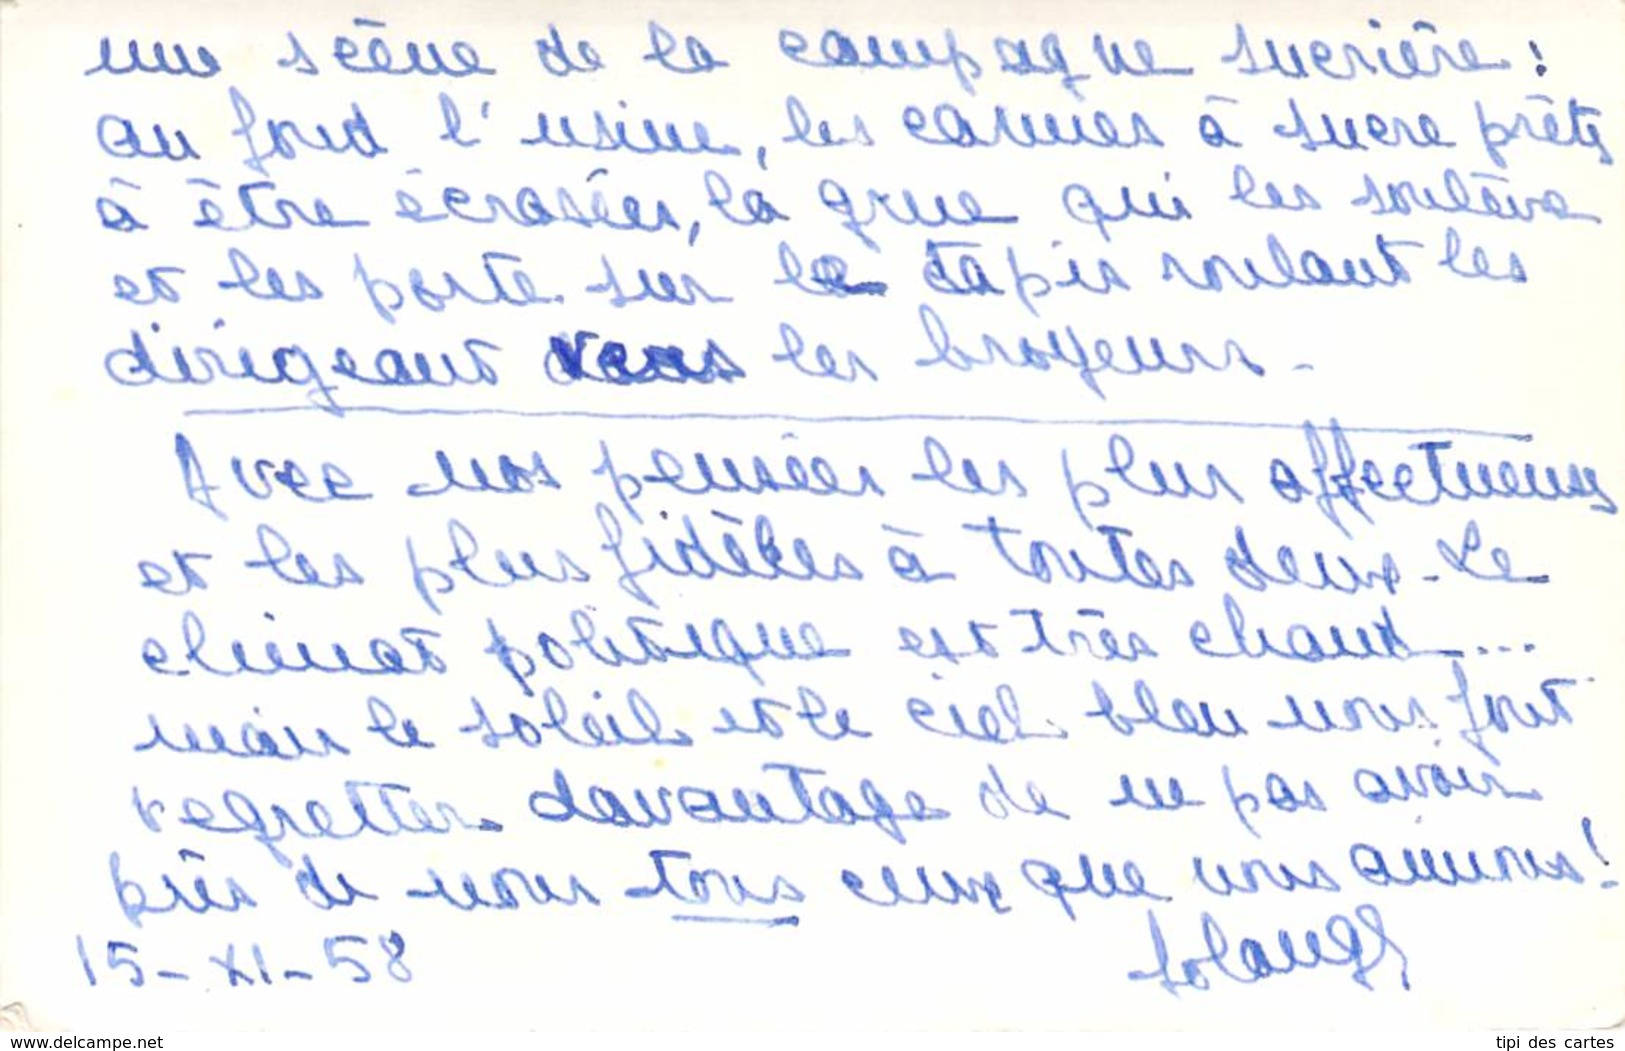 une scène de la campagne sucrière :
au fond l'usine, les cannes à sucre prêtes
à être écrasées, la grue qui les soulève
et les porte sur le tapis roulant les
dirigeant vers les broyeurs -
Avec nos pensées les plus affectueuses
et les plus fidèles à toutes deux - Le
climat politique est très chaud....
mais le soleil et le ciel bleu nous font
regretter davantage de ne pas avoir
près de nous tous ceux que nous aimons !
15-XI-58
Solange
www.delcampe.net
tipi des cartes